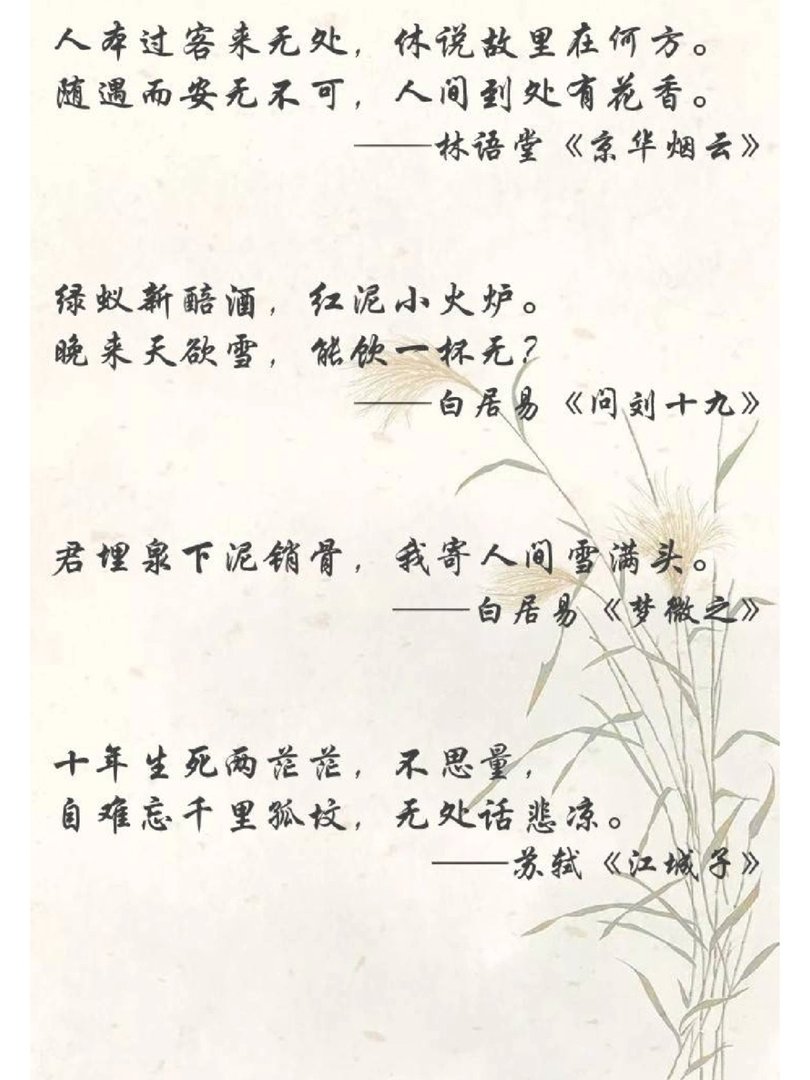 人本过客来无处，休说故里在何方。
随遇而安无不可，人间到处有花香。
——林语堂《京华烟云》
绿蚁新醅酒，红泥小火炉。
晚来天欲雪，能饮一杯无？
——白居易《问刘十九》
君埋泉下泥销骨，我寄人间雪满头。
——白居易《梦微之》
十年生死两茫茫，不思量，
自难忘千里孤坟，无处话悲凉。
——苏轼《江城子》